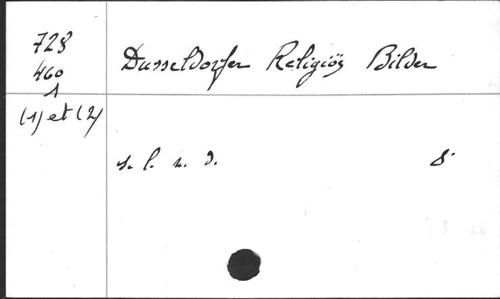 728
460
1
(1) et (2)
Dusseldorfer Religiös Bilder
s. l. n. d.
8°